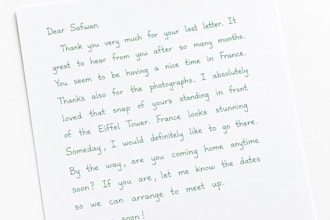 Dear Safwan
Thank you very much for your last letter. It
great to hear from you after so many months.
You seem to be having a nice time in France.
Thanks also for the photographs. I absolutely
loved that snap of yours standing in front
of the Eiffel Tower. France looks stunning
Someday, I would definitely like to go there.
By the way, are you coming home anytime
soon? If you are, let me know the dates
so we can arrange to meet up.
soon!